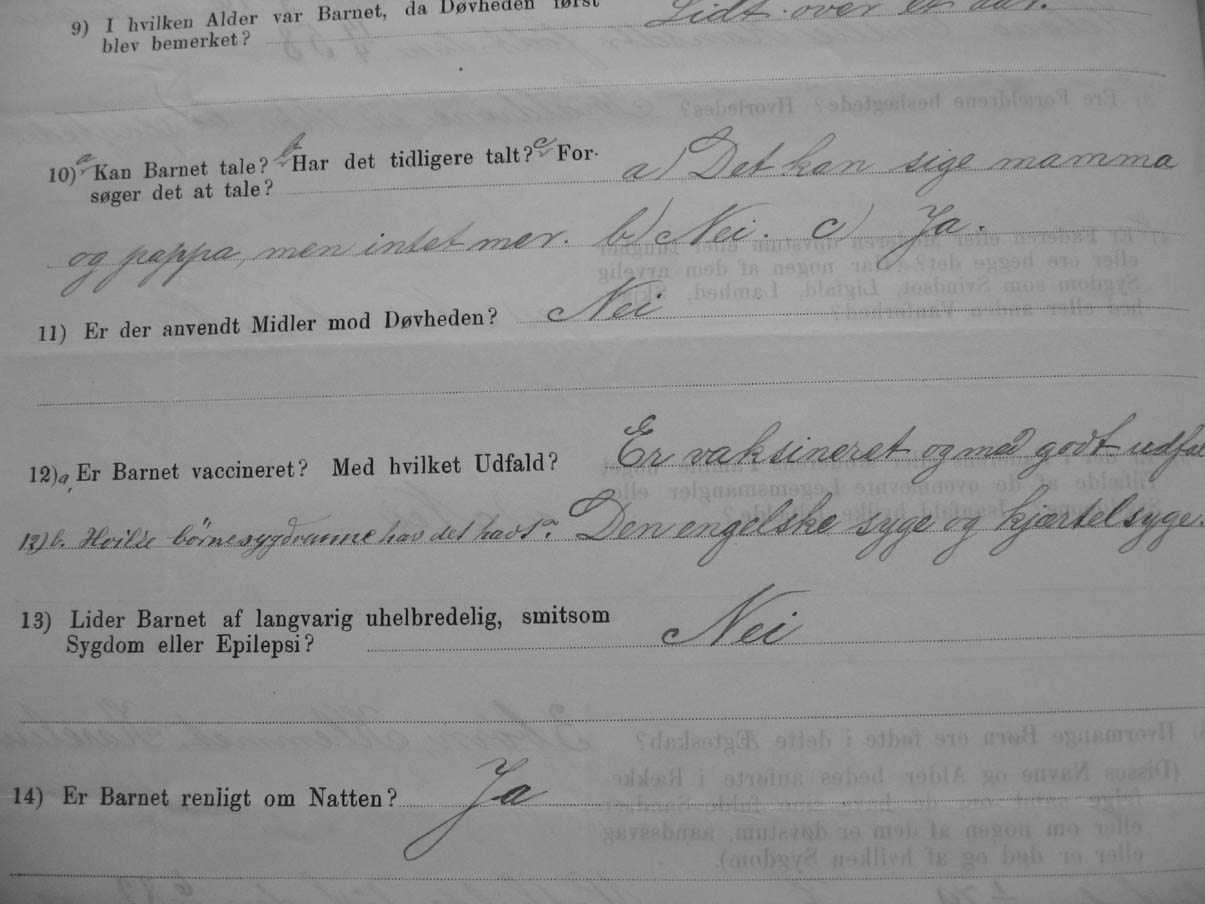 9) I hvilken Alder var Barnet, da Døvheden først Lidt over et aar.
blev bemerket?
10) a Kan Barnet tale? b Har det tidligere talt? c For-
søger det at tale? a) Det kan sige mamma
og pappa, men intet mer. b) Nei. c) Ja.
11) Er der anvendt Midler mod Døvheden? Nei
12) a, Er Barnet vaccineret? Med hvilket Udfald? Er vaksineret og med godt udfal
12) b. Hvilke børnesygdomme har det havt? Den engelske syge og kjærtelsyge.
13) Lider Barnet af langvarig uhelbredelig, smitsom
Sygdom eller Epilepsi? Nei
14) Er Barnet renligt om Natten? Ja